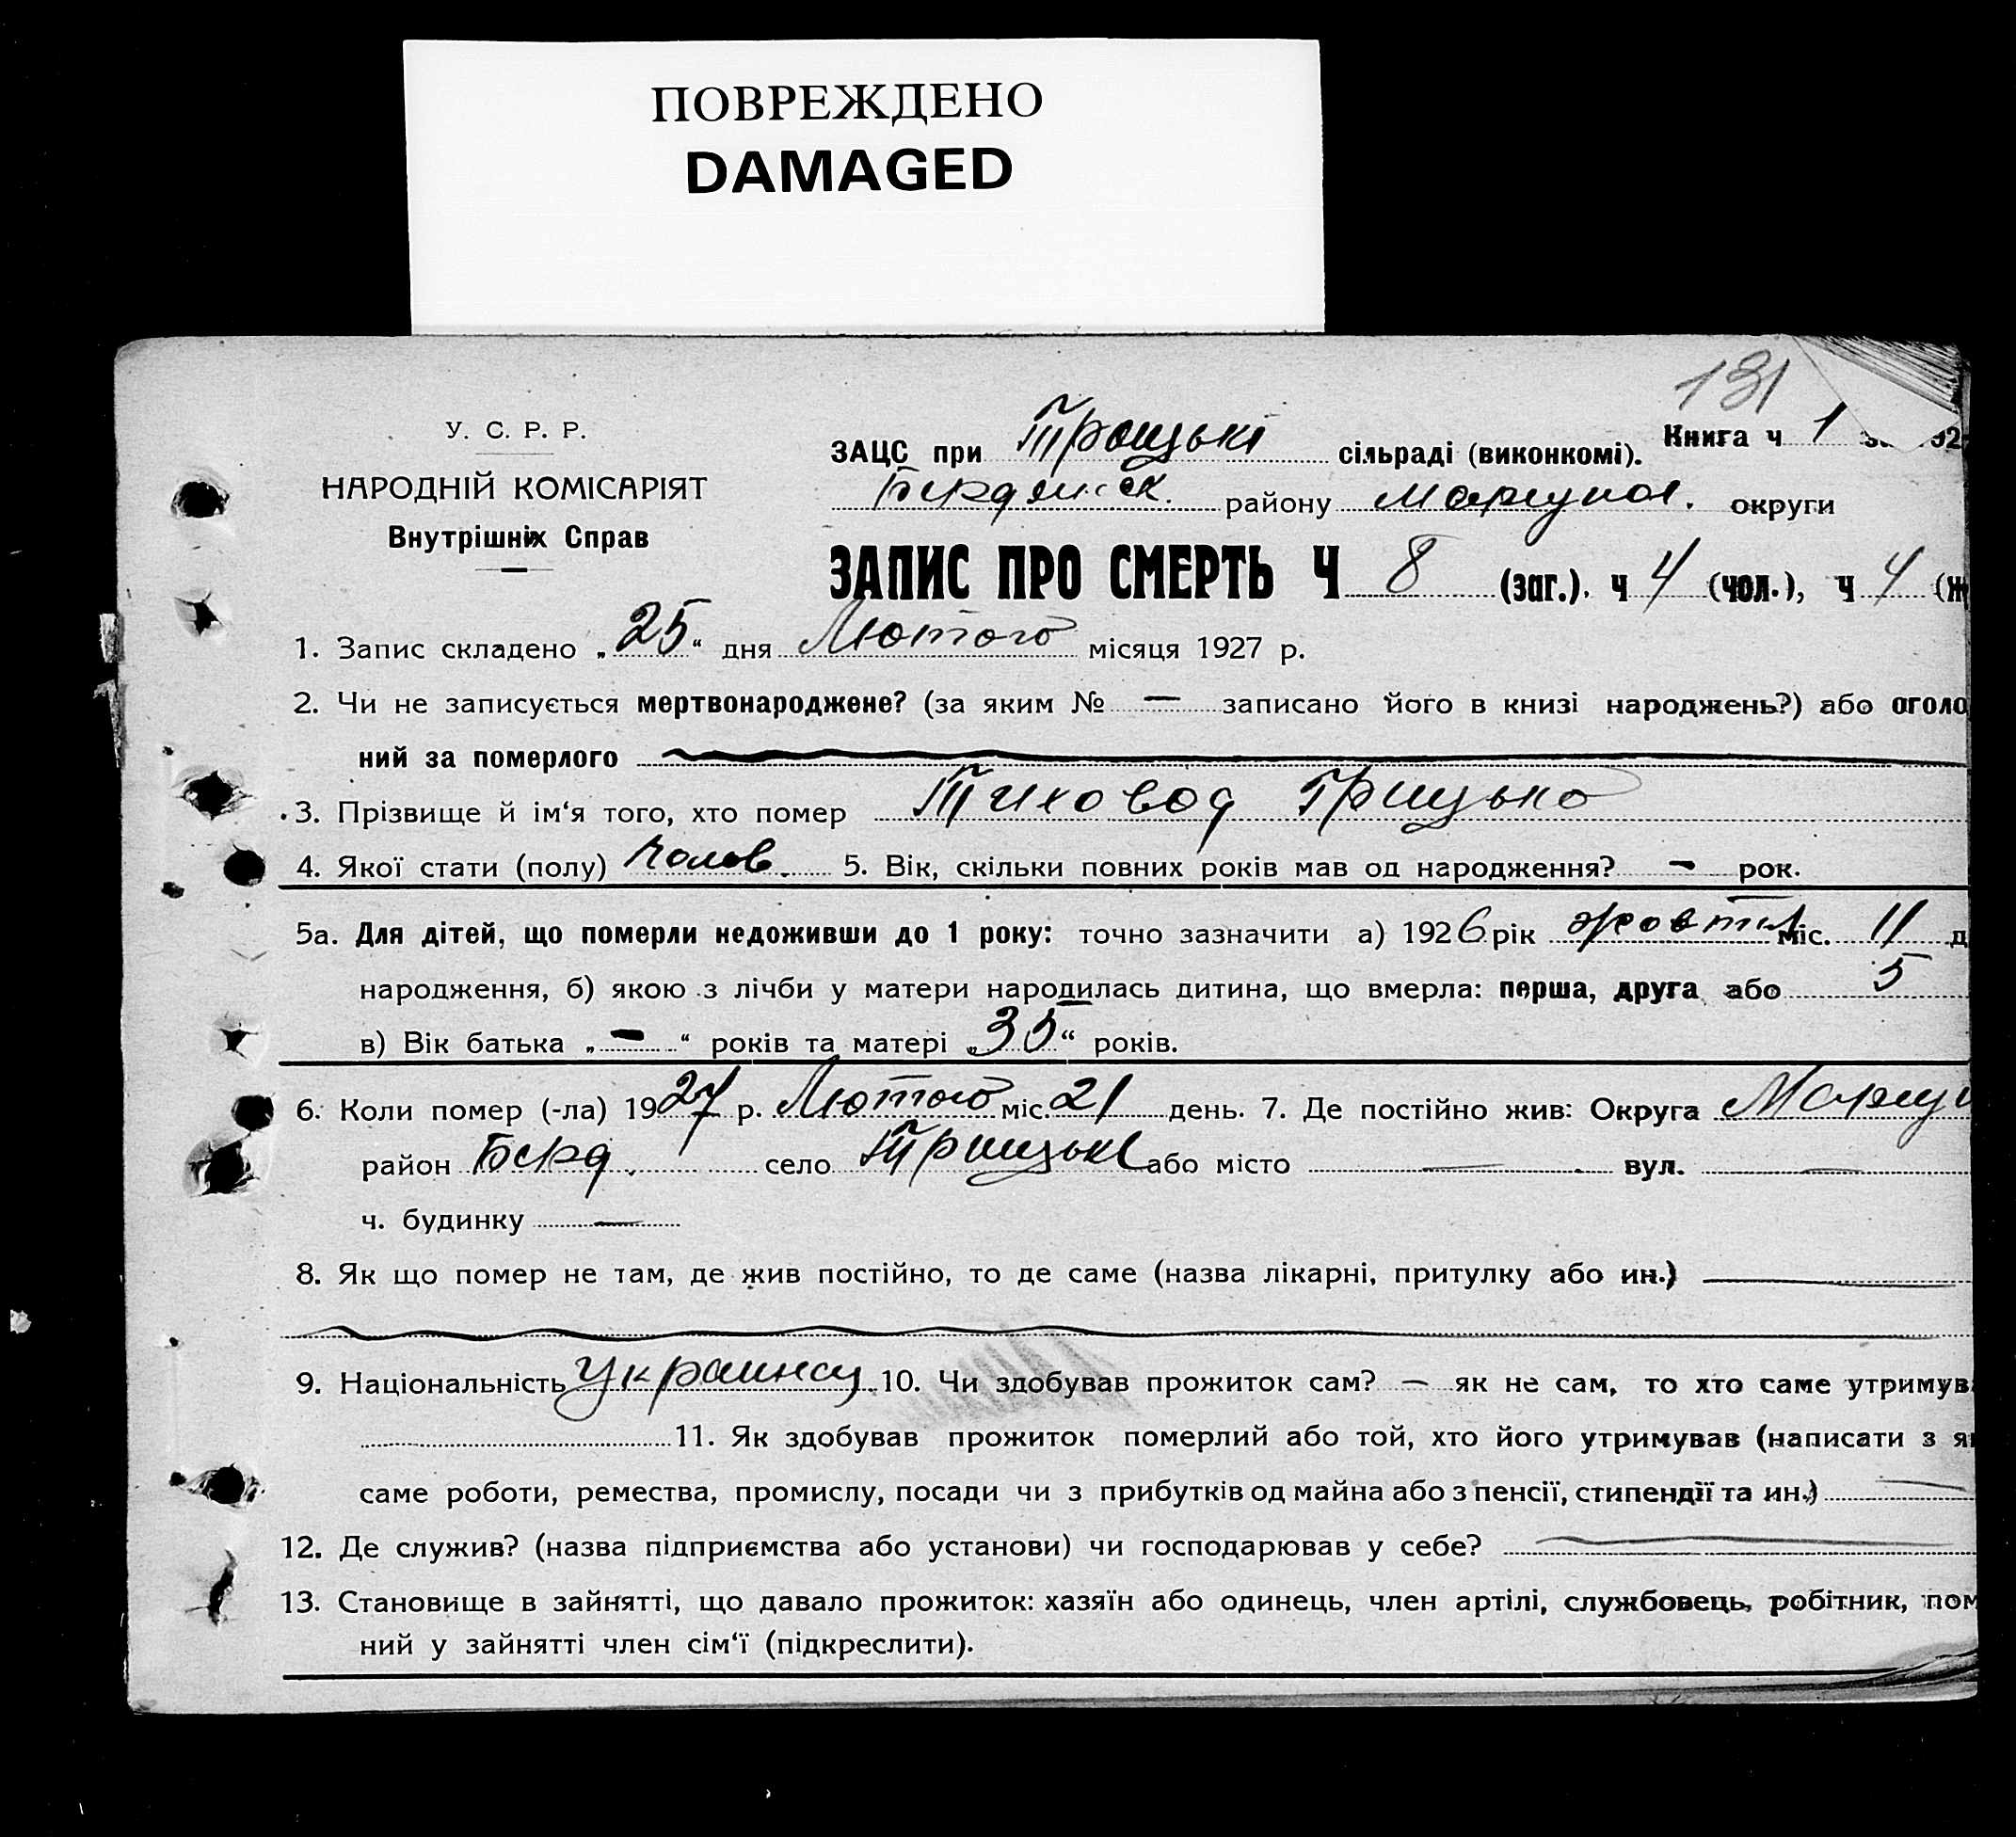 ПОВРЕЖДЕНО
DAMAGED
131
У. С. Р. Р.
НАРОДНІЙ КОМІСАРІЯТ
Внутрішніх Справ
Книга ч 1
ЗАЦС при Троицькі сільраді (виконкомі).
Бердянськ. району Мариупол. округи
ЗАПИС ПРО СМЕРТЬ Ч 8 (заг.). ч 4 (чол.), ч 4 (ж
1. Запис складено „25“ дня Лютого місяця 1927 р.
2. Чи не записується мертвонароджене? (за яким № — записано його в книзі народжень?) або оголо
ний за померлого
3. Прізвище й ім‘я того, хто помер Тиховод Грицько
4. Якої стати (полу) Чолов. 5. Вік, скільки повних років мав од народження? — рок.
5а. Для дітей, що померли недоживши до 1 року: точно зазначити а) 1926 рік жовтня міс. 11 д
народження, б) якою з лічби у матери народилась дитина, що вмерла: перша, друга або 5
в) Вік батька „—“ років та матері „35“ років.
6. Коли помер (-ла) 1927 р. Лютого міс. 21 день. 7. Де постійно жив: Округа Мариу
район Берд. село Троицьке або місто — вул. —
ч. будинку —
8. Як що помер не там, де жив постійно, то де саме (назва лікарні, притулку або ин.) —
9. Національність Украинец 10. Чи здобував прожиток сам? — як не сам, то хто саме утримув
11. Як здобував прожиток померлий або той, хто його утримував (написати з я
саме роботи, ремества, промислу, посади чи з прибутків од майна або з пенсії, стипендії та ин.) —
12. Де служив? (назва підприємства або установи) чи господарював у себе? —
13. Становище в зайнятті, що давало прожиток: хазяїн або одинець, член артілі, службовець, робітник, пом
ний у зайнятті член сім‘ї (підкреслити).